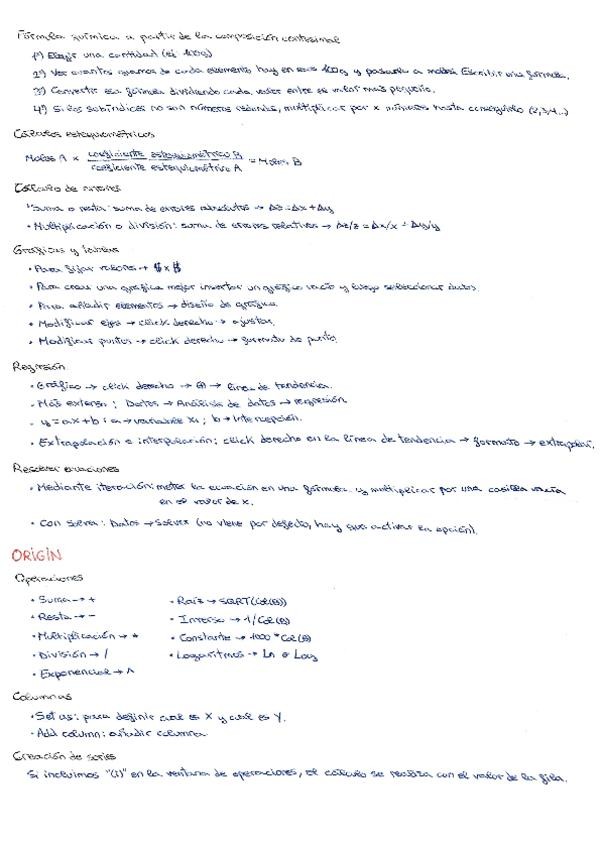 Fórmula química a partir de la composición centesimal
1º) Elegir una cantidad (ej 100g)
2º) Ver cuantos gramos de cada elemento hay en esos 100g y pasarlo a moles. Escribir una fórmula.
3º) Convertir esa fórmula dividiendo cada valor entre el valor más pequeño.
4º) Si los subíndices no son números redondos, multiplicar por x números hasta conseguirlo (2,3,4...)
Cálculos estequiométricos
Moles A × coeficiente estequiométrico B / coeficiente estequiométrico A = Moles B
Cálculo de errores
· Suma o resta: suma de errores absolutos → Δz = Δx + Δy
· Multiplicación o división: suma de errores relativos → Δz/z = Δx/x + Δy/y
Gráficas y tablas
· Para fijar valores → $x$
· Para crear una gráfica mejor insertar un gráfico vacío y luego seleccionar datos.
· Para añadir elementos → diseño de gráfica.
· Modificar ejes → click derecho → ajustar.
· Modificar puntos → click derecho → formato de punto.
Regresión
· Gráfico → click derecho → línea de tendencia.
· Más extenso: Datos → Análisis de datos → regresión
· y = ax + b : a → variable X1 ; b → intercepción.
· Extrapolación e interpolación: click derecho en la línea de tendencia → formato → extrapolar.
Resolver ecuaciones
· Mediante iteración: meter la ecuación en una fórmula y multiplicar por una casilla vacía
en el valor de x.
· Con solver: Datos → Solver (no viene por defecto, hay que activar la opción).
ORIGIN
Operaciones
· Suma → +
· Resta → -
· Multiplicación → *
· División → /
· Exponencial → ^
· Raíz → SQRT(Col(B))
· Inverso → 1/Col(B)
· Constante → 1000 * Col(B)
· Logaritmos → Ln o Log
Columnas
· Set as: para definir cual es X y cual es Y.
· Add column: añadir columna
Creación de series
Si incluimos "(i)" en la ventana de operaciones, el cálculo se realiza con el valor de la fila.